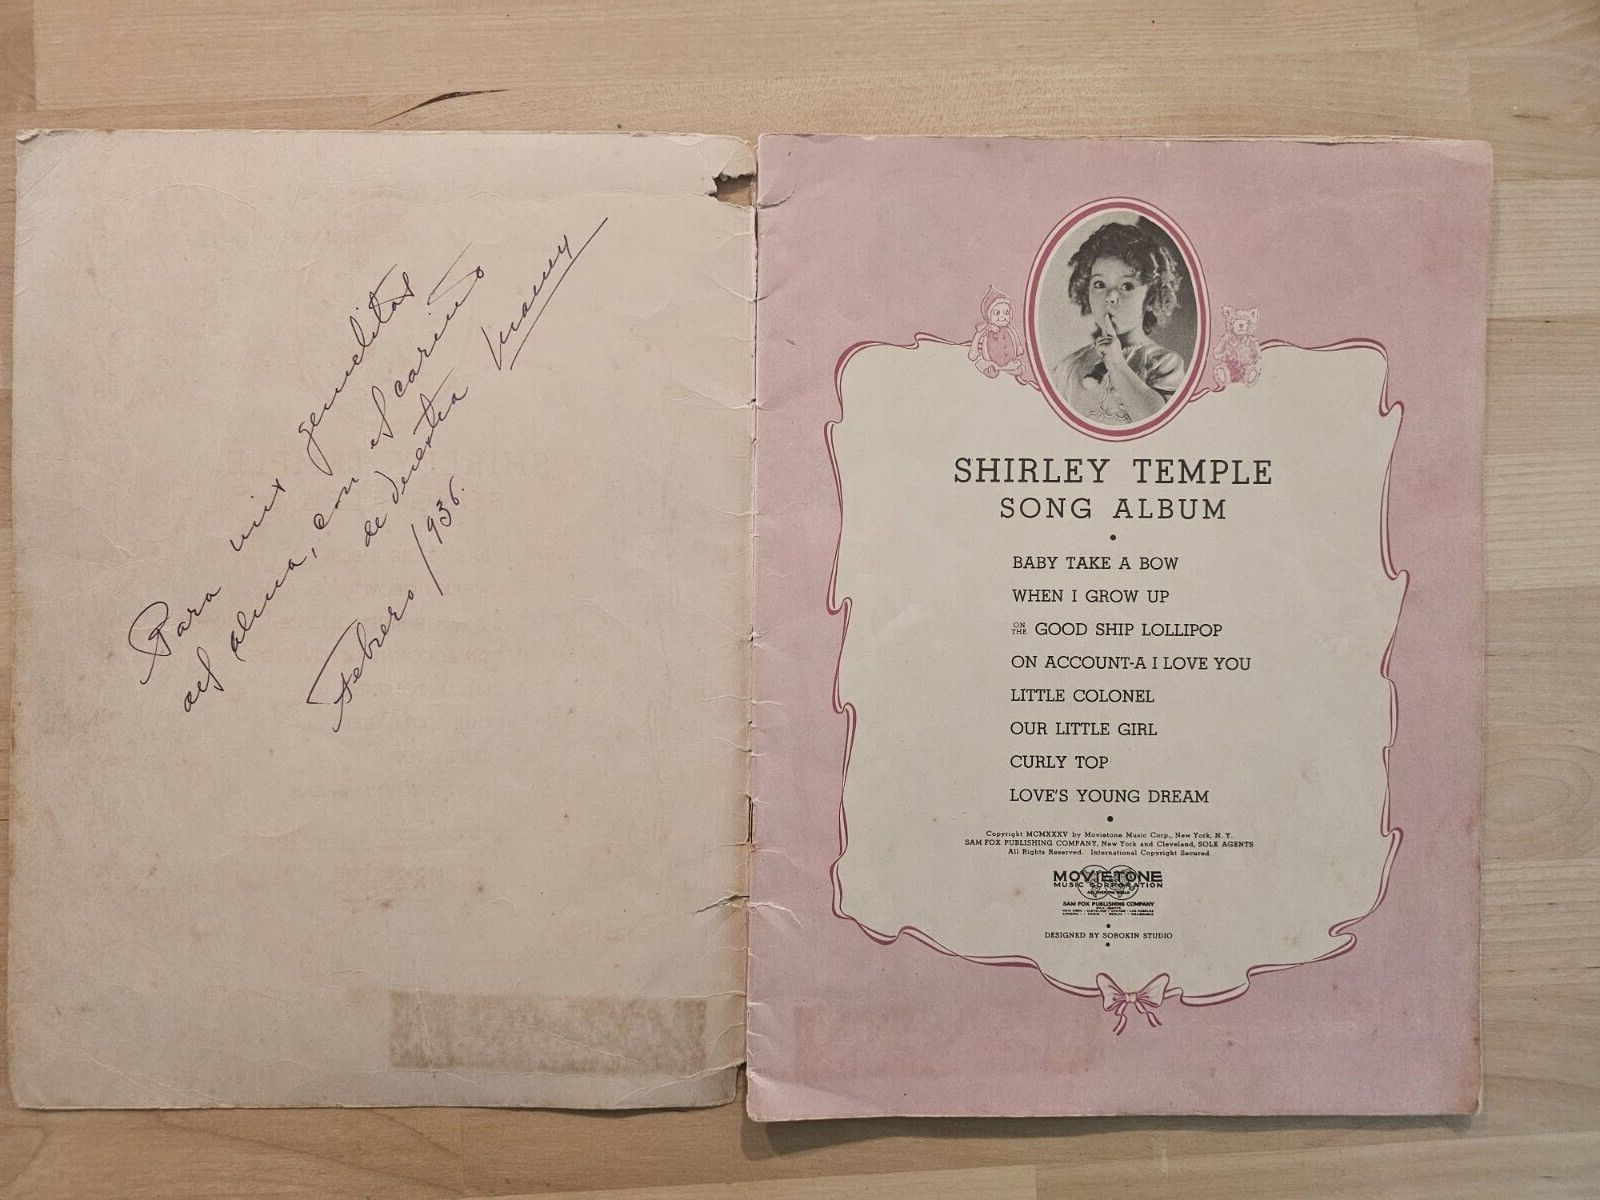 Para mis gemelitas
del alma, con el cariño
de vuestra Mamy
Febrero/1936.
SHIRLEY TEMPLE
SONG ALBUM
BABY TAKE A BOW
WHEN I GROW UP
ON THE GOOD SHIP LOLLIPOP
ON ACCOUNT-A I LOVE YOU
LITTLE COLONEL
OUR LITTLE GIRL
CURLY TOP
LOVE'S YOUNG DREAM
Copyright MCMXXXV by Movietone Music Corp., New York, N. Y.
SAM FOX PUBLISHING COMPANY, New York and Cleveland, SOLE AGENTS
All Rights Reserved. International Copyright Secured.
MOVIETONE
MUSIC CORPORATION
SAM FOX PUBLISHING COMPANY
SOLE AGENTS
NEW YORK CLEVELAND CHICAGO LOS ANGELES
LONDON PARIS BERLIN MELBOURNE
DESIGNED BY SOROKIN STUDIO